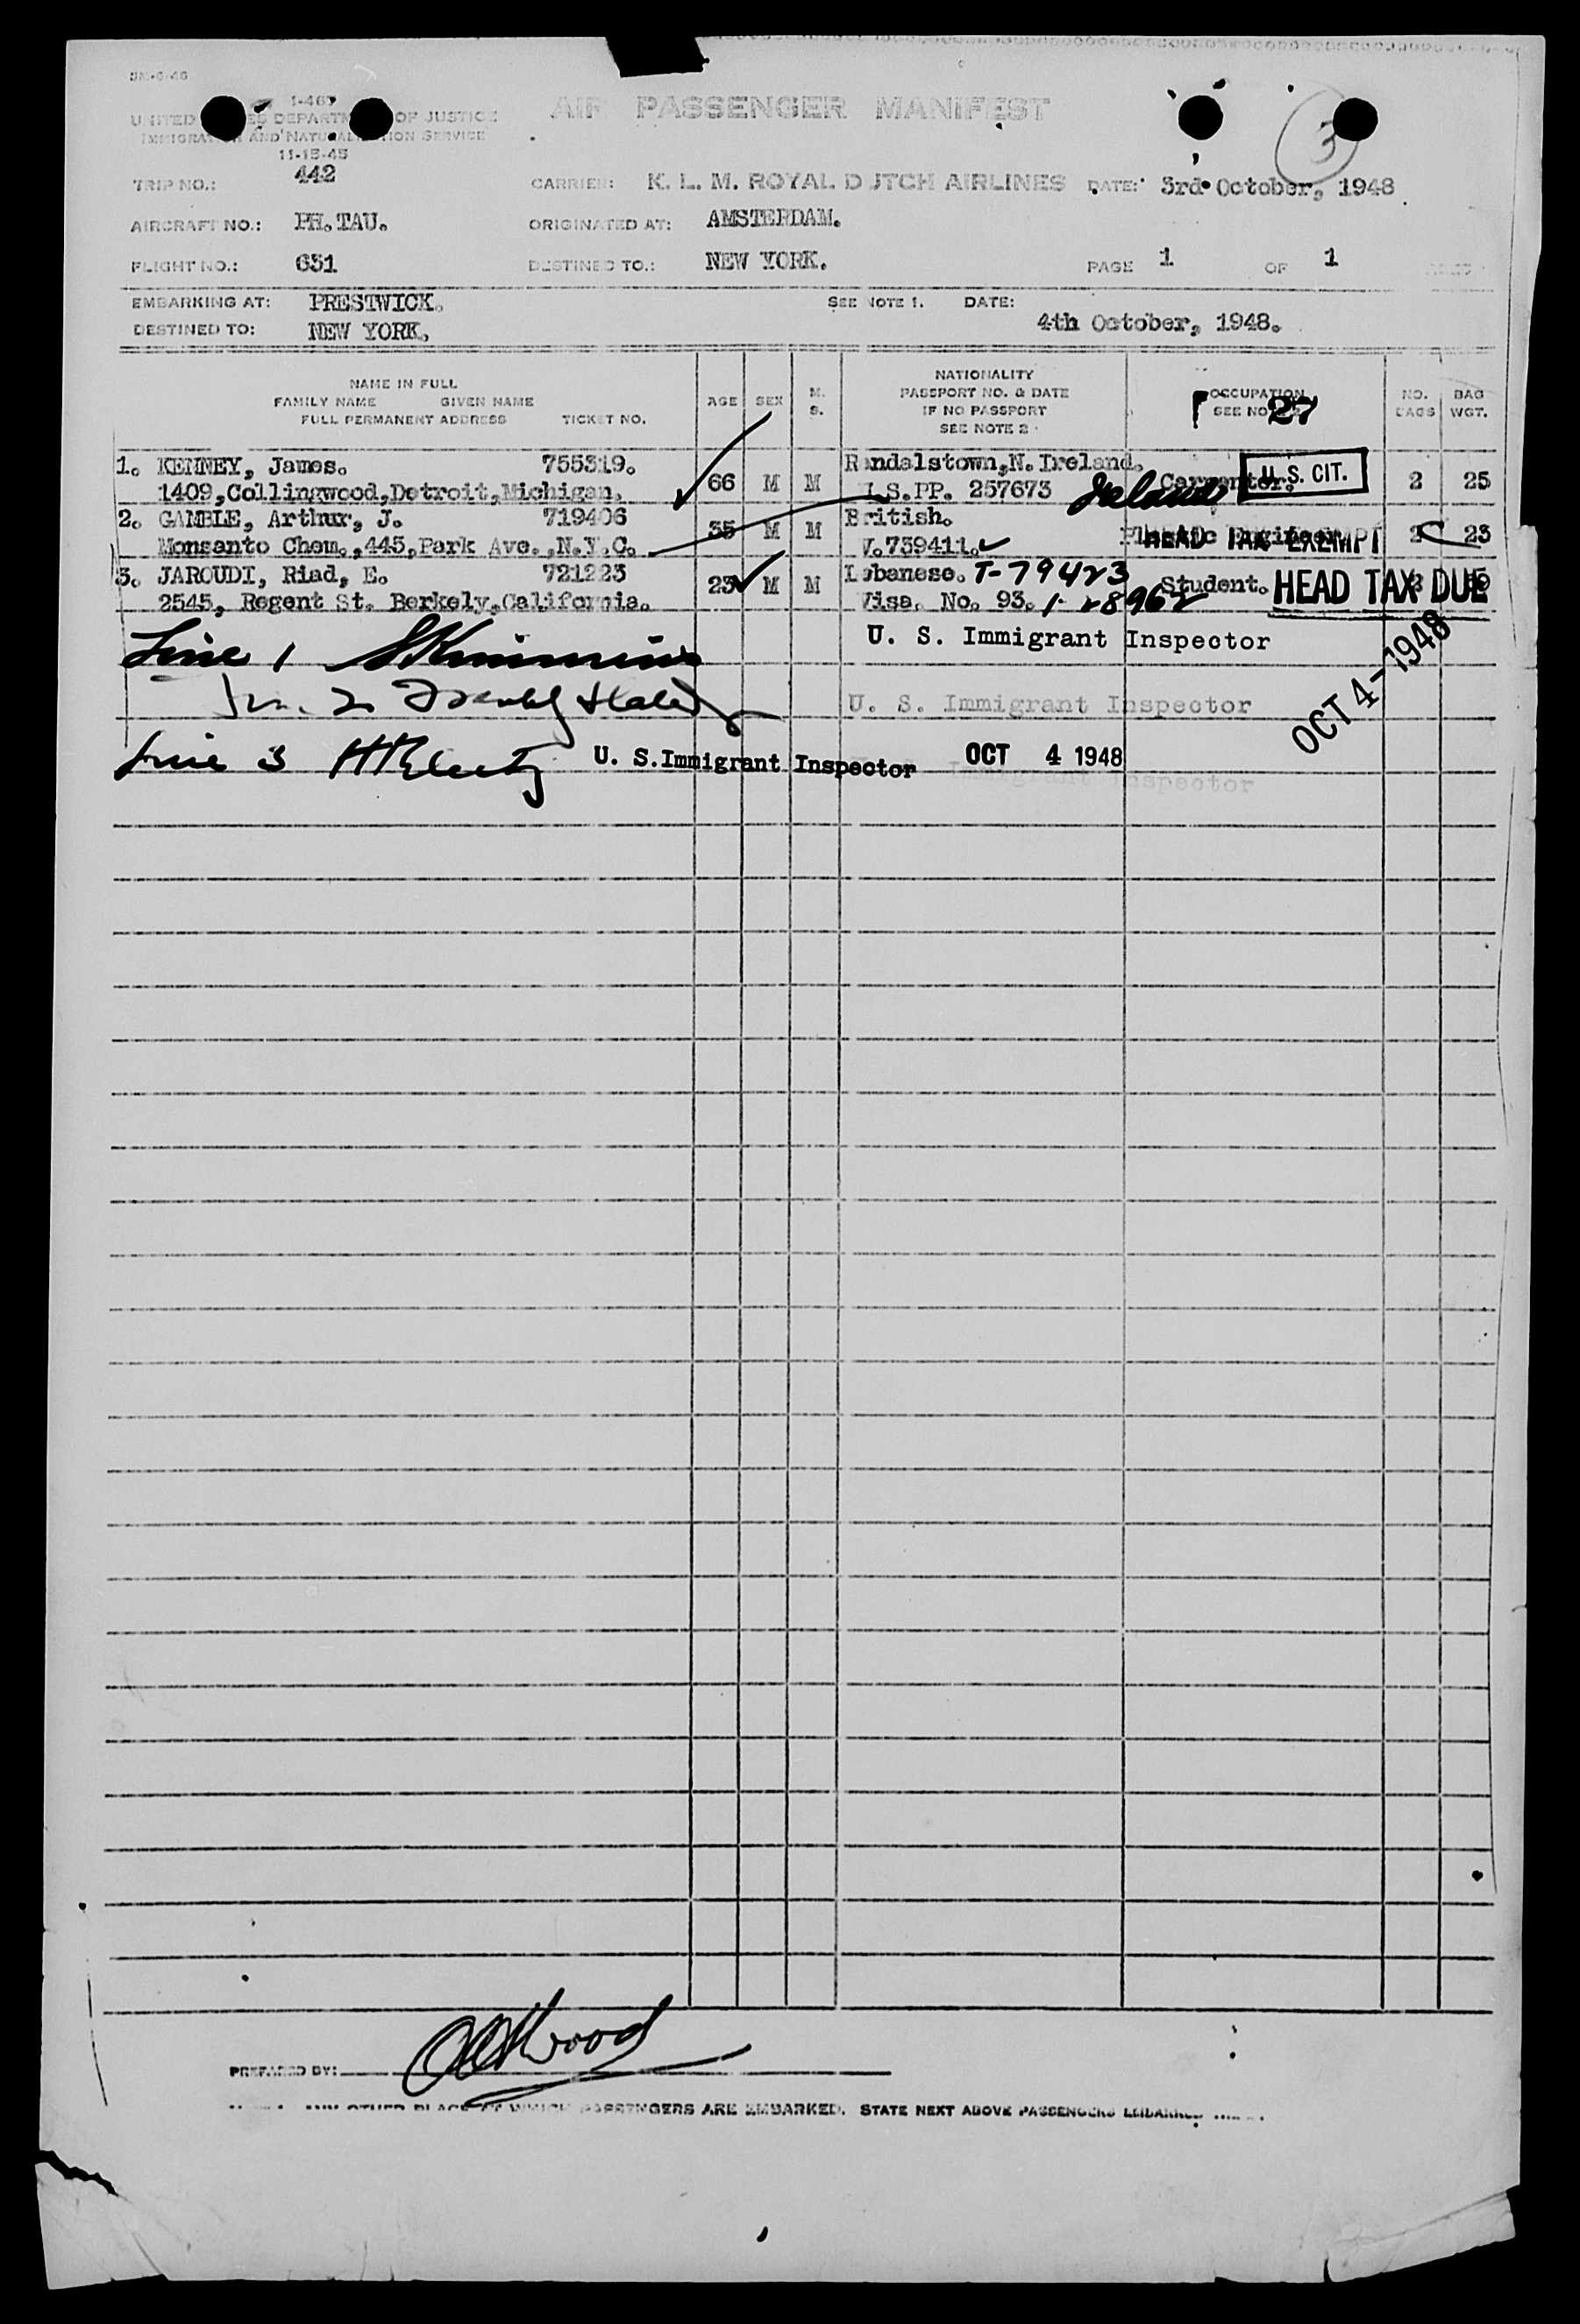 I-467
UNITED STATES DEPARTMENT OF JUSTICE
IMMIGRATION AND NATURALIZATION SERVICE
11-15-45
AIR PASSENGER MANIFEST
3
TRIP NO.: 442 CARRIER: K. L. M. ROYAL DUTCH AIRLINES DATE: 3rd October, 1948
AIRCRAFT NO.: PH.TAU. ORIGINATED AT: AMSTERDAM.
FLIGHT NO.: 631 DESTINED TO.: NEW YORK. PAGE 1 OF 1
EMBARKING AT: PRESTWICK. SEE NOTE 1. DATE:
DESTINED TO: NEW YORK, 4th October, 1948.
NAME IN FULL
FAMILY NAME GIVEN NAME
FULL PERMANENT ADDRESS TICKET NO.
AGE SEX M. S.
NATIONALITY
PASSPORT NO. & DATE
IF NO PASSPORT
SEE NOTE 2
OCCUPATION
SEE NO 27
NO. BAGS BAG WGT.
1. KENNEY, James. 755319. Randalstown,N.Ireland.
1409,Collingwood,Detroit,Michigan. 66 M M U.S.PP. 257673 Ireland Carpenter. U. S. CIT. 2 25
2. GAMBLE, Arthur, J. 719406 British.
Monsanto Chem.,445,Park Ave.,N.Y.C. 35 M M V.739411. Plastic Engineer HEAD TAX EXEMPT 2 23
3. JAROUDI, Riad, E. 721223 Lebanese. T-79423
2545, Regent St. Berkely,California. 23 M M Visa. No. 93. Student. HEAD TAX DUE
Line 1 U. S. Immigrant Inspector
U. S. Immigrant Inspector
OCT 4-1948
Line 3 U. S.Immigrant Inspector OCT 4 1948
Immigrant Inspector
PREPARED BY:
ANY OTHER PLACE AT WHICH PASSENGERS ARE EMBARKED. STATE NEXT ABOVE PASSENGERS EMBARKED